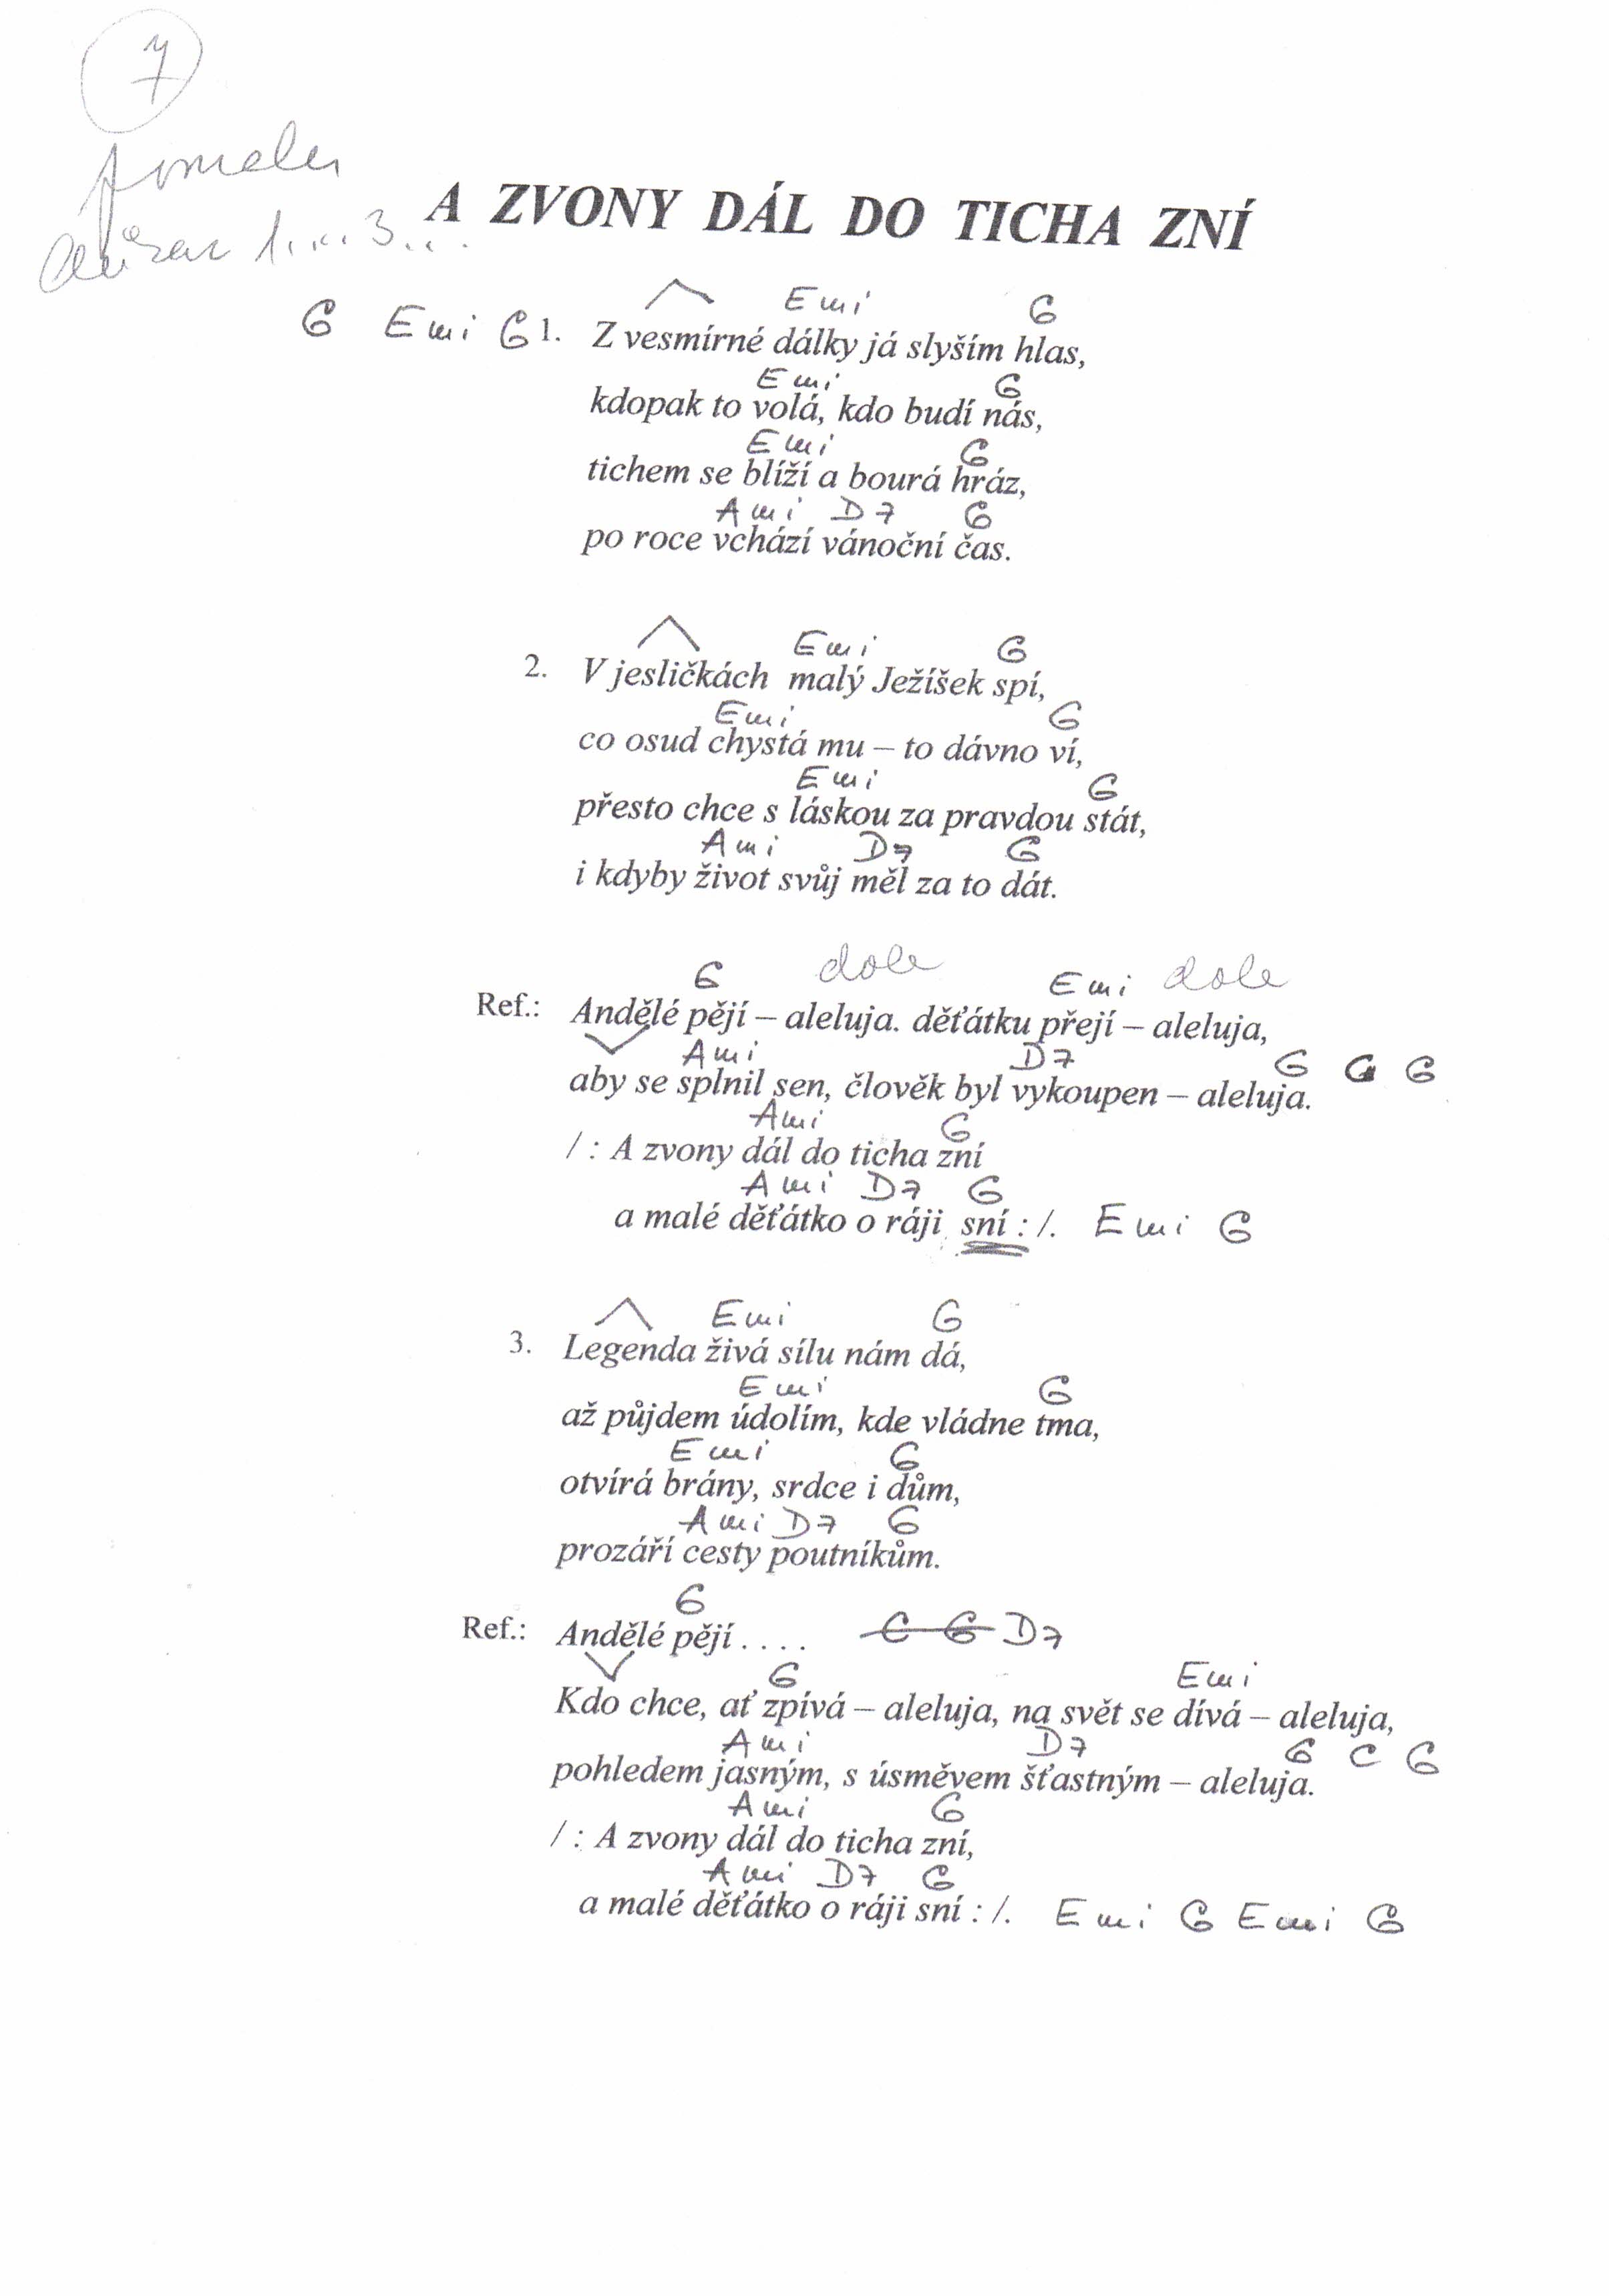 7
pomalu
důraz 1.... 3...
A ZVONY DÁL DO TICHA ZNÍ
Emi G
G Emi G 1. Z vesmírné dálky já slyším hlas,
Emi G
kdopak to volá, kdo budí nás,
Emi G
tichem se blíží a bourá hráz,
Ami D7 G
po roce vchází vánoční čas.
Emi G
2. V jesličkách malý Ježíšek spí,
Emi G
co osud chystá mu – to dávno ví,
Emi G
přesto chce s láskou za pravdou stát,
Ami D7 G
i kdyby život svůj měl za to dát.
G dole Emi dole
Ref.: Andělé pějí – aleluja. děťátku přejí – aleluja,
Ami D7 G G G
aby se splnil sen, člověk byl vykoupen – aleluja.
Ami G
/ : A zvony dál do ticha zní
Ami D7 G
a malé děťátko o ráji sní : /. Emi G
Emi G
3. Legenda živá sílu nám dá,
Emi G
až půjdem údolím, kde vládne tma,
Emi G
otvírá brány, srdce i dům,
Ami D7 G
prozáří cesty poutníkům.
G
Ref.: Andělé pějí . . . . C G D7
G Emi
Kdo chce, ať zpívá – aleluja, na svět se dívá – aleluja,
Ami D7 G C G
pohledem jasným, s úsměvem šťastným – aleluja.
Ami G
/ : A zvony dál do ticha zní,
Ami D7 G
a malé děťátko o ráji sní : /. Emi G Emi G